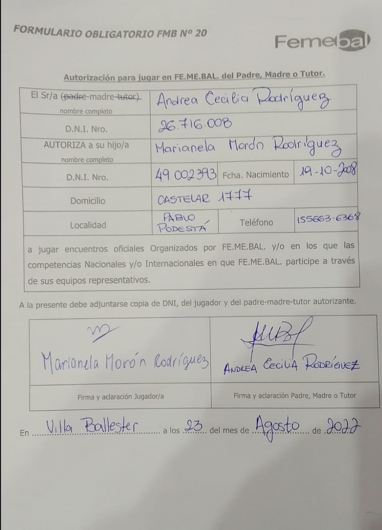 FORMULARIO OBLIGATORIO FMB Nº 20
Femebal
Autorización para jugar en FE.ME.BAL. del Padre, Madre o Tutor.
El Sr/a (padre-madre-tutor). Andrea Cecilia Rodríguez
nombre completo
D.N.I. Nro. 26.716.008
AUTORIZA a su hijo/a Marianela Morón Rodríguez
nombre completo
D.N.I. Nro. 49 002393 Fcha. Nacimiento 19-10-2008
Domicilio CASTELAR 1777
Localidad PABLO PODESTÁ Teléfono 155663-6368
a jugar encuentros oficiales Organizados por FE.ME.BAL. y/o en los que las
competencias Nacionales y/o Internacionales en que FE.ME.BAL. participe a través
de sus equipos representativos.
A la presente debe adjuntarse copia de DNI, del jugador y del padre-madre-tutor autorizante.
Marianela Morón Rodríguez ANDREA CECILIA RODRÍGUEZ
Firma y aclaración Jugador/a Firma y aclaración Padre, Madre o Tutor
En Villa Ballester a los 23 del mes de Agosto de 2022